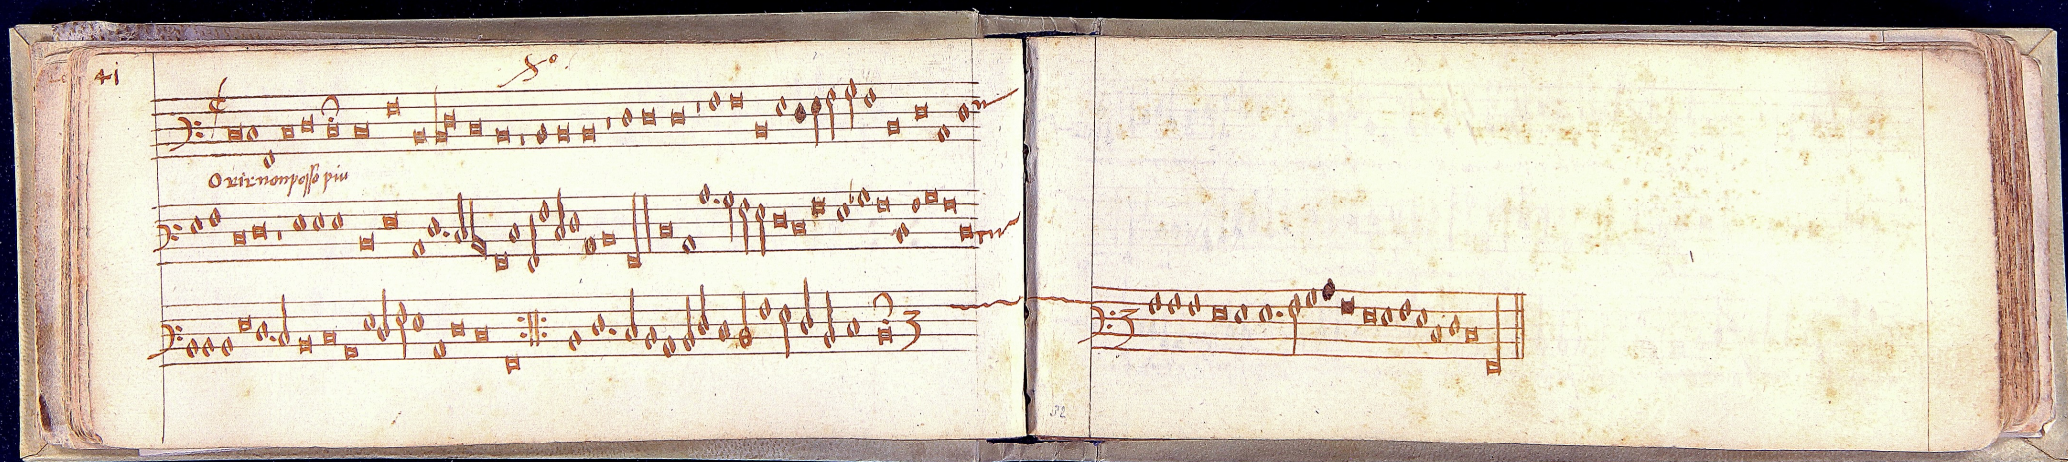 41
O rir non posso piu
3
3
32